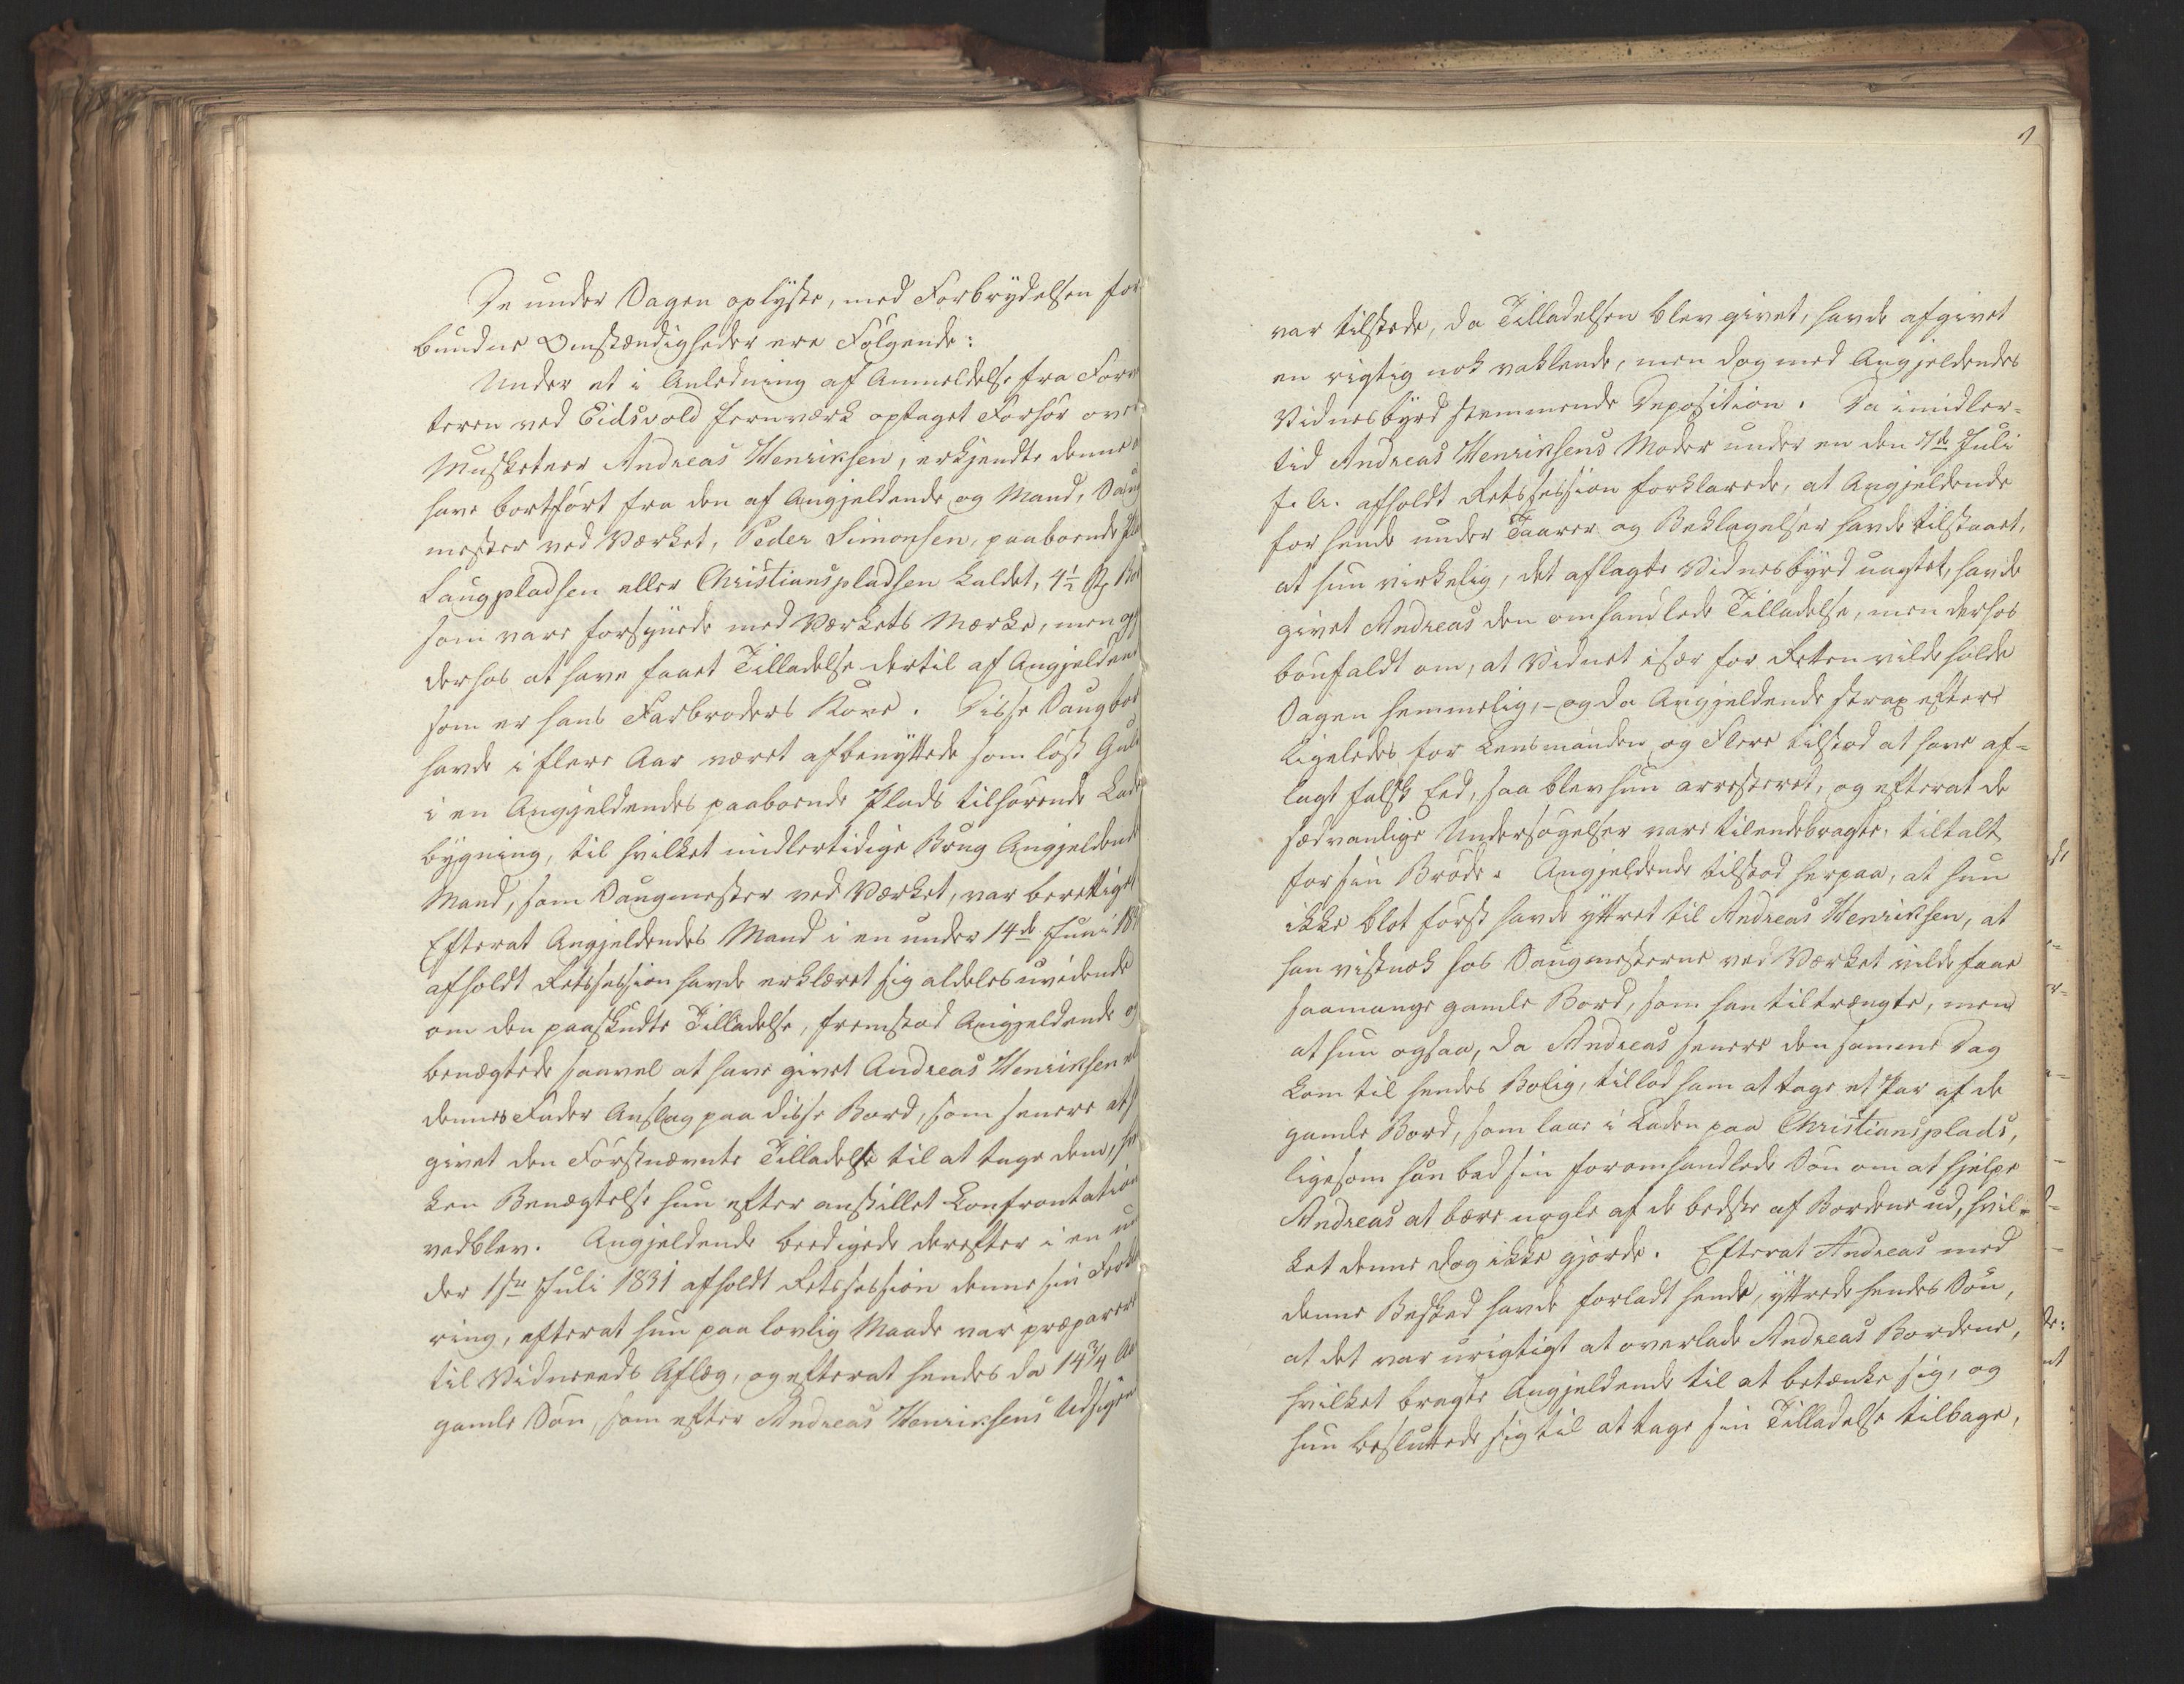 De under Sagen oplyste, med Forbrydelsen for
bundne Omstændigheder ere Følgende:
Under et i Anledning af Anmeldelse fra Forv
teren ved Eidsvold Jernværk optaget Forhør over
Musketeer Andreas Henriksen, erkjendte denne a
have bortført fra den af Angjeldende og Mand, Saug
mester ved Værket, Peder Simonsen, paaboende Pla
Saugpladsen eller Christianspladsen kaldet, 4½ Bord
som vare forsynede med Værkets Mærke, men
derhos at have faaet Tilladelse dertil af Angjeldend
som er hans Farbroders Kone. Disse Saugbor
havde i flere Aar været afbenyttede som løst Gulv
i en Angjeldendes paaboende Plads tilhørende Lade
bygning, til hvilket midlertidige Brug Angjeldende
Mand, som Saugmester ved Værket, var berettiget
Efterat Angjeldendes Mand i en under 14de Juni 183
afholdt Retssession havde erklæret sig aldeles uvidende
om den paaskudte Tilladelse, fremstod Angjeldende og
benægtede saavel at have givet Andreas Henriksen el
dennes Fader Anslag paa disse Bord, som senere at
givet den Førstnævnte Tilladelse til at tage dem, hvil
ken Benægtelse hun efter anstillet Confrontation
vedblev. Angjeldende beedigede derefter i en un
der 1ste Juli 1831 afholdt Retssession denne sin Forkla
ring, efterat hun paa lovlig Maade var præparere
til Vidneeds Aflæg, og efterat hendes da 14¾ Aar
gamle Søn, som efter Andreas Henriksens Udsigen
var tilstede, da Tilladelsen blev givet, havde afgivet
en rigtig nok vaklende, men dog med Angjeldendes
Vidnesbyrd stemmende Deposition. Da imidler-
tid Andreas Henriksens Moder under en den 7de Juli
f. A. afholdt Retssession forklarede, at Angjeldende
for hende under Taarer og Beklagelser havde tilstaaet,
at hun virkelig, det aflagte Vidnesbyrd uagtet, havde
givet Andreas den omhandlede Tilladelse, men derhos
bønfaldt om, at Vidnet især for Retten vilde holde
Sagen hemmelig, - og da Angjeldende strax efter
ligeledes for Lensmanden og Flere tilstod at have af-
lagt falsk Eed, saa blev hun arresteret, og efterat de
sædvanlige Undersøgelser vare tilendebragte, tiltalt
for sin Brøde. Angjeldende tilstod herpaa, at hun
ikke blot først havde yttret til Andreas Henriksen, at
han vistnok hos Saugmesterne ved Værket vilde faae
saamange gamle Bord, som han tiltrængte, men
at hun ogsaa, da Andreas senere den samme Dag
kom til hendes Bolig, tillod ham at tage et Par af de
gamle Bord, som laae i Laden paa Christiansplads,
ligesom hun bad sin foromhandlede Søn om at hjelpe
Andreas at bære nogle af de bedste af Bordene ud, hvil-
ket denne dog ikke gjorde. Efterat Andreas med
denne Besked havde forladt hende, yttrede hendes Søn,
at det var urigtigt at overlade Andreas Bordene,
hvilket bragte Angjeldende til at betænke sig, og
hun besluttede sig til at tage sin Tilladelse tilbage,